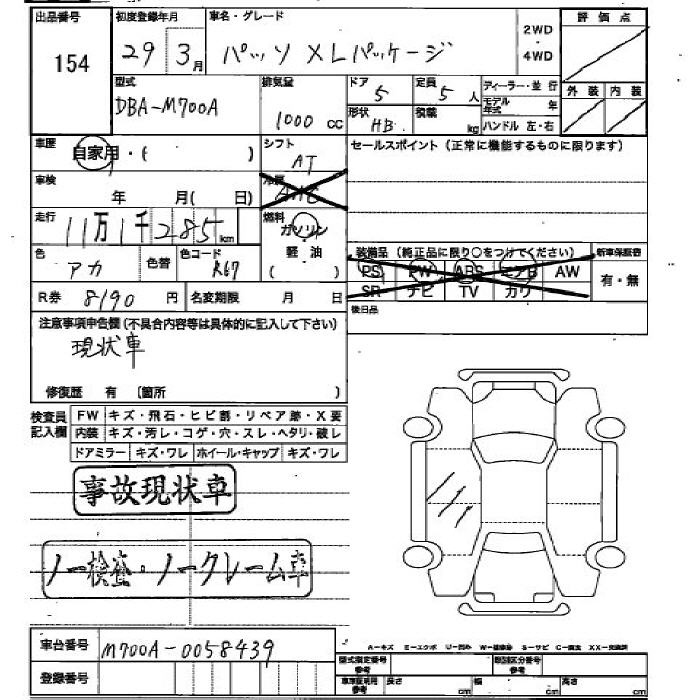 出品番号 初度登録年月 車名・グレード 2WD ・ 4WD 評価点
154 29 3月 パッソ X Lパッケージ
型式 排気量 ドア 定員 ディーラー・並行 外装 内装
DBA-M700A 1000 cc 5 5人 モデル年式 年
形状 HB 積載 kg ハンドル 左・右
車歴 自家用・( ) シフト AT セールスポイント (正常に機能するものに限ります)
車検 年 月( 日) 冷房 AAC
走行 11万1千285km 燃料 ガソリン
軽油 ( )
装備品 (純正品に限り○をつけてください) 新車保証書
色 アカ 色替 色コード R67
PS PW ABS エアB AW 有・無
SR ナビ TV カワ
R券 8190 円 名変期限 月 日 後日品
注意事項申告欄(不具合内容等は具体的に記入して下さい)
現状車
修復歴 有 〔箇所 〕
検査員記入欄 FW キズ・飛石・ヒビ割・リペア跡・X要
内装 キズ・汚レ・コゲ・穴・スレ・ヘタリ・破レ
ドアミラー キズ・ワレ ホイール・キャップ キズ・ワレ
事故現状車
ノー検査・ノークレーム車
車台番号 M700A-0058439
A-キズ E-エクボ U-凹み S-サビ C-腐食 XX-交換済
登録番号 型式指定番号 参考 類別区分番号 参考
車庫証明用 参考 長さ cm 幅 cm 高さ cm